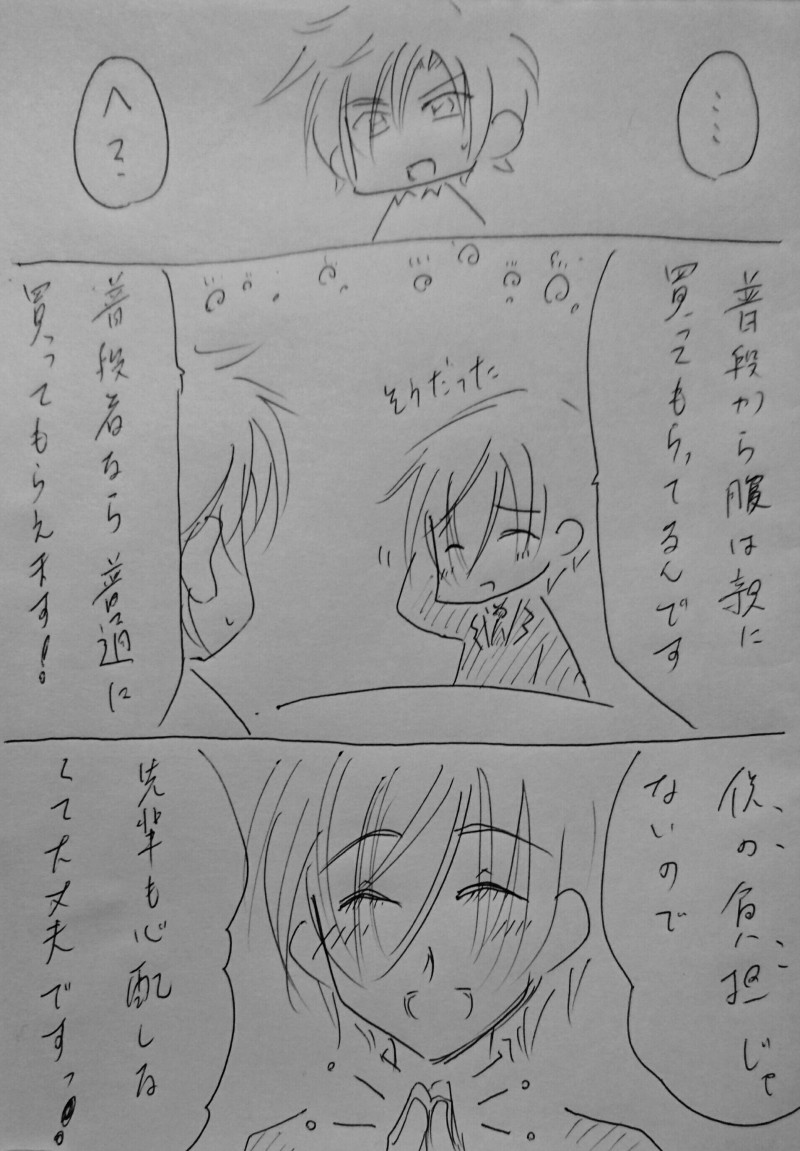 ……
へ?
普段から服は親に
買ってもらってるんです
そうだった
普段着なら普通に
買ってもらえます!
僕の負担じゃ
ないので
先輩も心配しな
くて大丈夫ですっ!